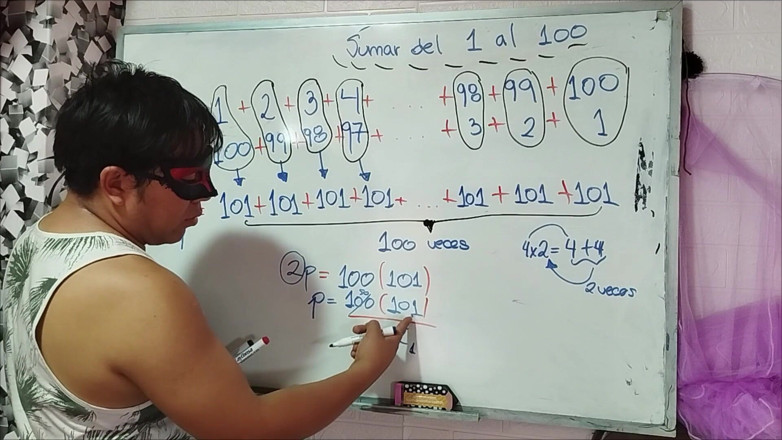 Sumar del 1 al 100
1 + 2 + 3 + 4 + ..... + 98 + 99 + 100
100 + 99 + 98 + 97 + ..... + 3 + 2 + 1
101 + 101 + 101 + 101 + ... + 101 + 101 + 101
100 veces
4x2 = 4 + 4
2 veces
2p = 100 (101)
50
p = 100 (101)